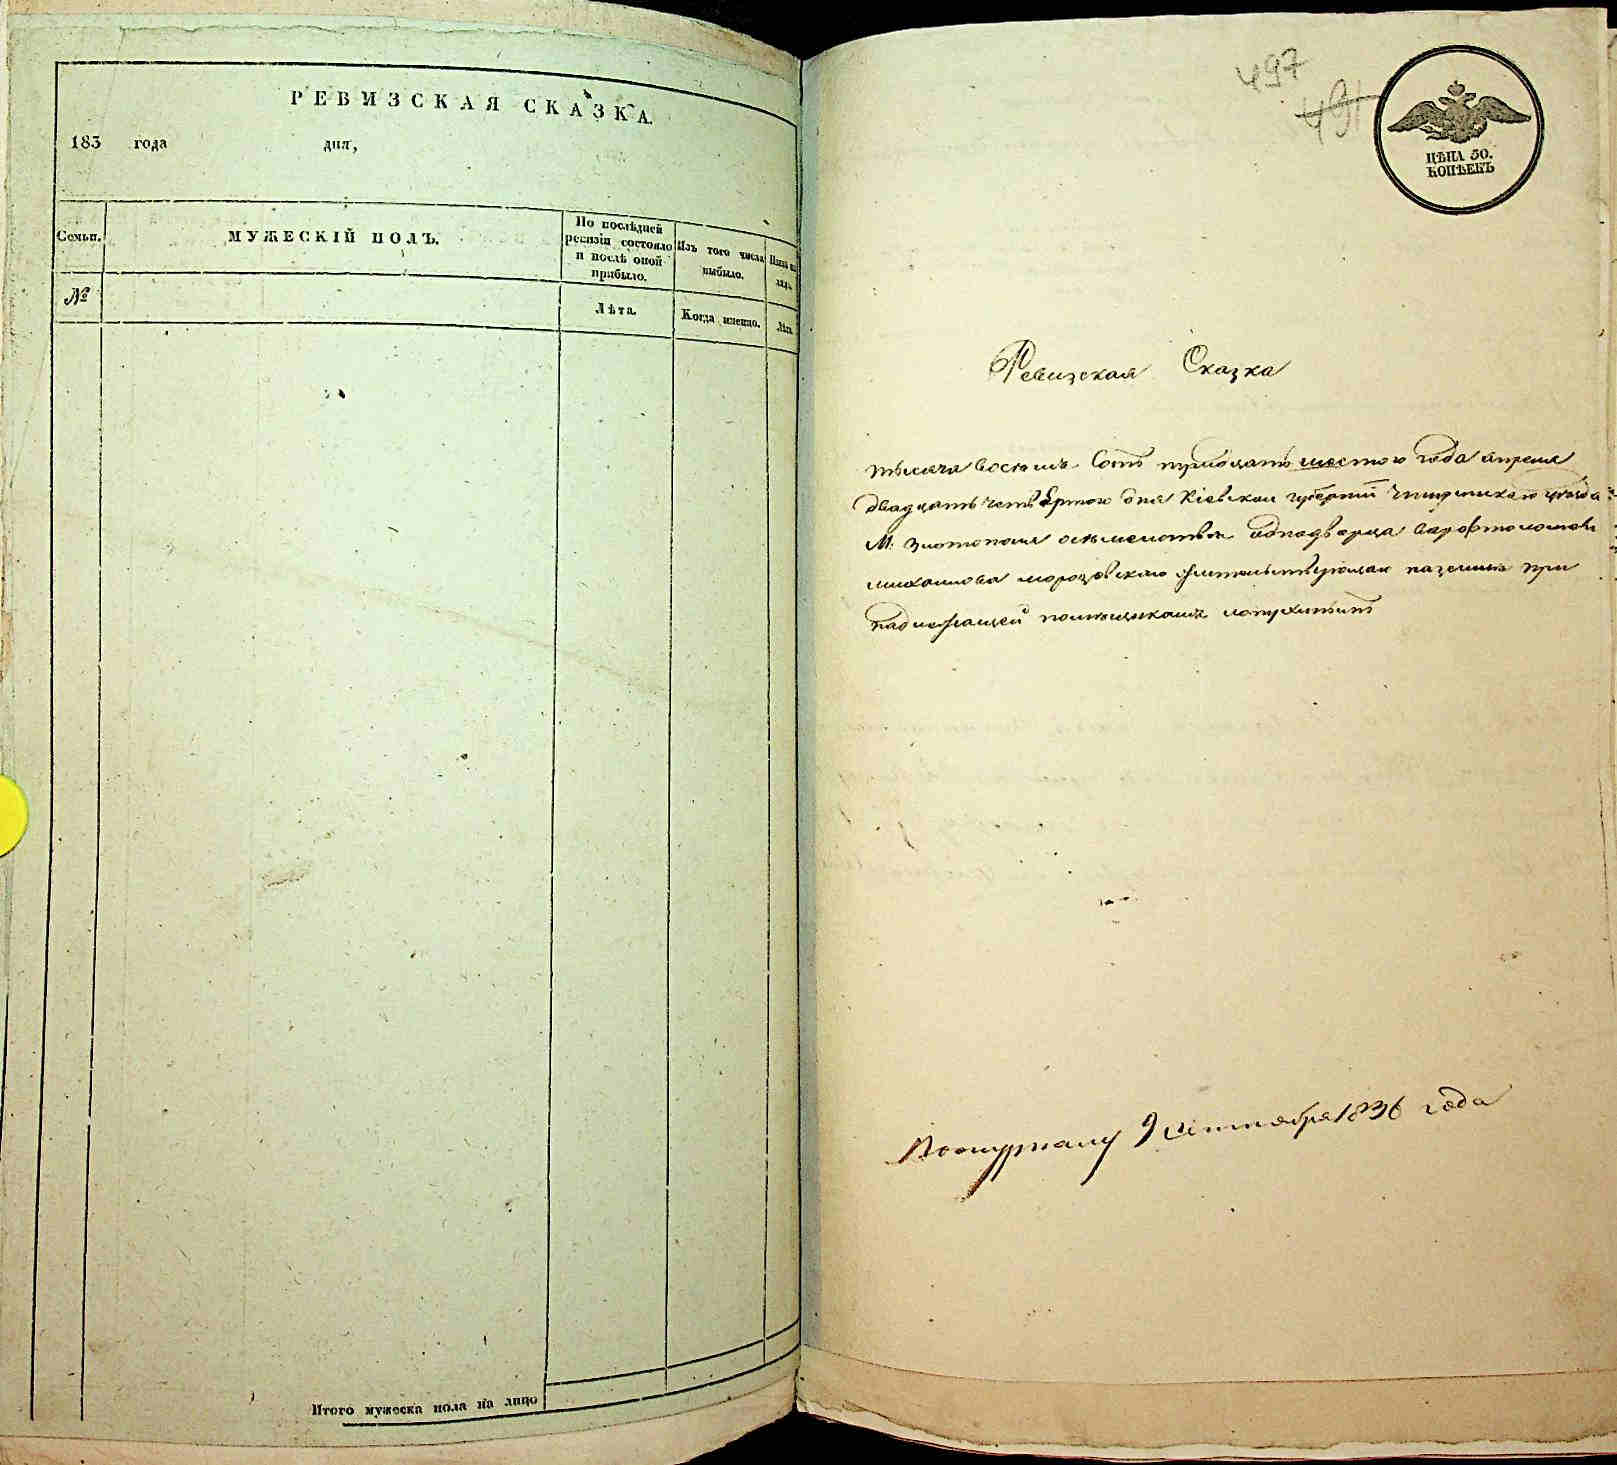 РЕВИЗСКАЯ СКАЗКА.
183 года дня,
Семьи.
МУЖЕСКІЙ ПОЛЪ.
По послѣдней
ревизіи состояло
и послѣ оной
прибыло.
Изъ того числа
выбыло.
Нынѣ на
лицо.
№
Лѣта.
Когда именно.
Лѣта.
Итого мужеска пола на лицо
497
491
ЦѢНА 50.
КОПѢЕКЪ
Ревизская Сказка
тысяча восемь Сотъ тридцать шестого года апреля
двадцать четвертого дня Кіевской губерніи Чигринскаго уезда
М. Златополя однодворца
михайлова морозовскаго жительствующаго
надлежащей помещикамъ
9 сентября 1836 года